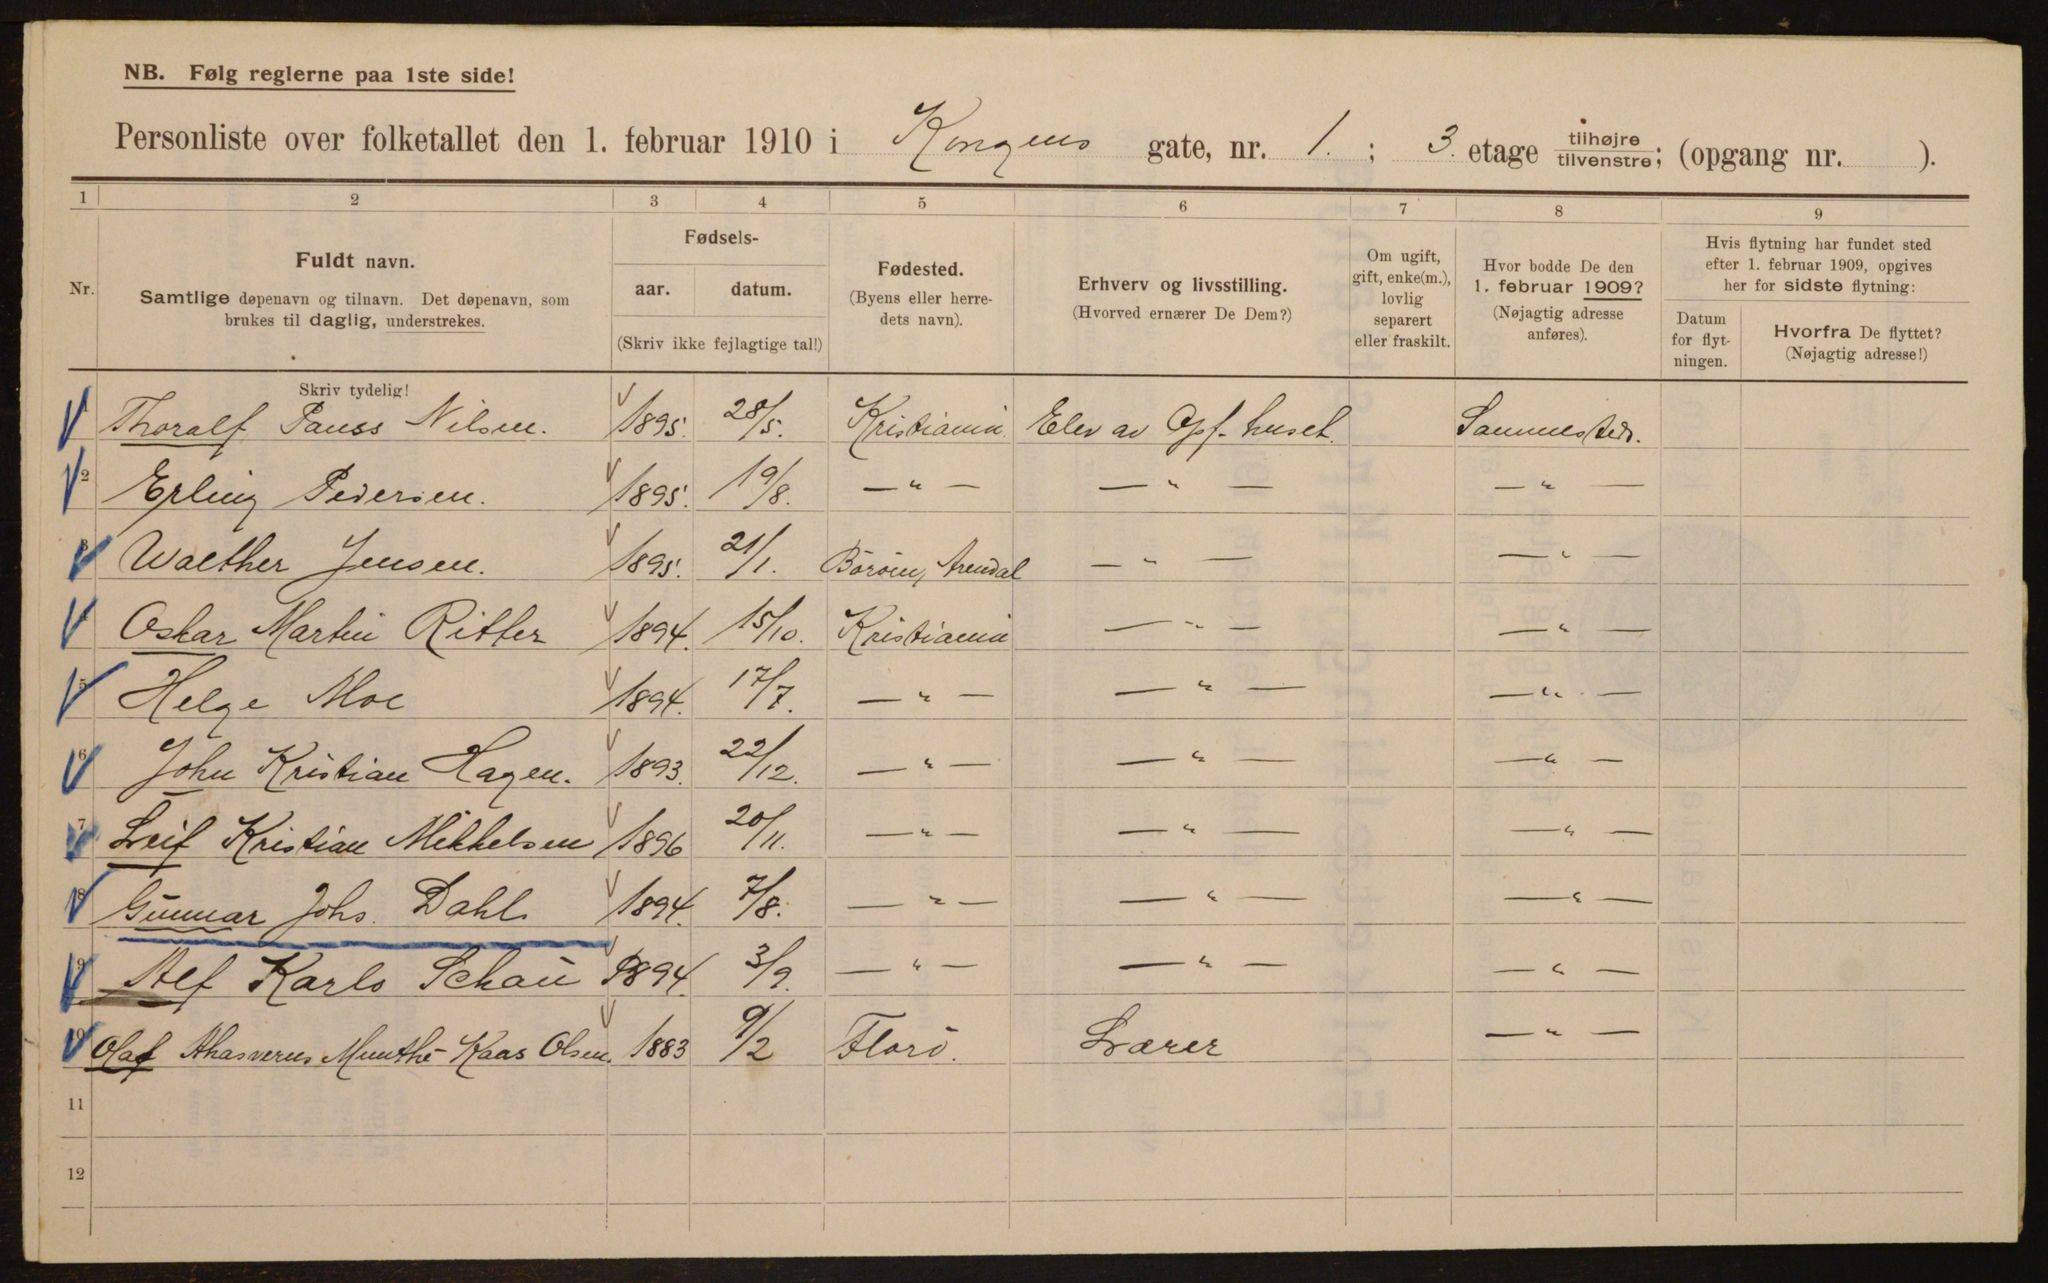 NB. Følg reglerne paa 1ste side!
Personliste over folketallet den 1. februar 1910 i Kongens gate, nr. 1. ; 3. etage tilhøjre/tilvenstre; (opgang nr. ).
1 2 3 4 5 6 7 8 9
Nr.
Fuldt navn.
Samtlige døpenavn og tilnavn. Det døpenavn, som
brukes til daglig, understrekes.
Skriv tydelig!
Fødsels-
aar. datum.
(Skriv ikke fejlagtige tal!)
Fødested.
(Byens eller herre-
dets navn).
Erhverv og livsstilling.
(Hvorved ernærer De Dem?)
Om ugift,
gift, enke(m.),
lovlig
separert
eller fraskilt.
Hvor bodde De den
1. februar 1909?
(Nøjagtig adresse
anføres).
Hvis flytning har fundet sted
efter 1. februar 1909, opgives
her for sidste flytning:
Datum
for flyt-
ningen.
Hvorfra De flyttet?
(Nøjagtig adresse!)
1 Thoralf Pauss Nilsen. 1895. 28/5. Kristiania Elev av Opf. huset. Sammesteds.
2 Erling Pedersen. 1895. 19/8. — " — — " — — " —
3 Walther Jensen. 1895. 21/1. Arendal — " — — " —
4 Oskar Martin Ritter 1894. 15/10. Kristiania — " — — " —
5 Helge Moe 1894. 17/7. — " — — " — — " —
6 John Kristian Hagen. 1893. 22/12. — " — — " — — " —
7 Leif Kristian Mikkelsen 1896 20/11. — " — — " — — " —
8 Gunnar Johs. Dahl 1894. 7/8. — " — — " — — " —
9 Alf Karlo Schau 1894. 3/9. — " — — " — — " —
10 Olaf Ahasverus Munthe-Kaas Olsen. 1883 9/2 Florö. Lærer — " —
11
12